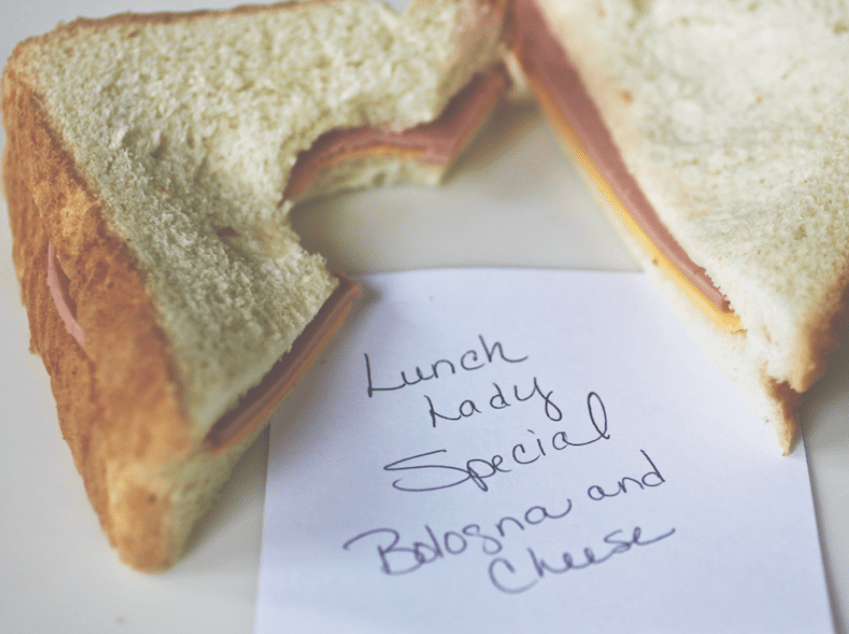 Lunch
Lady
Special
Bologna and
Cheese